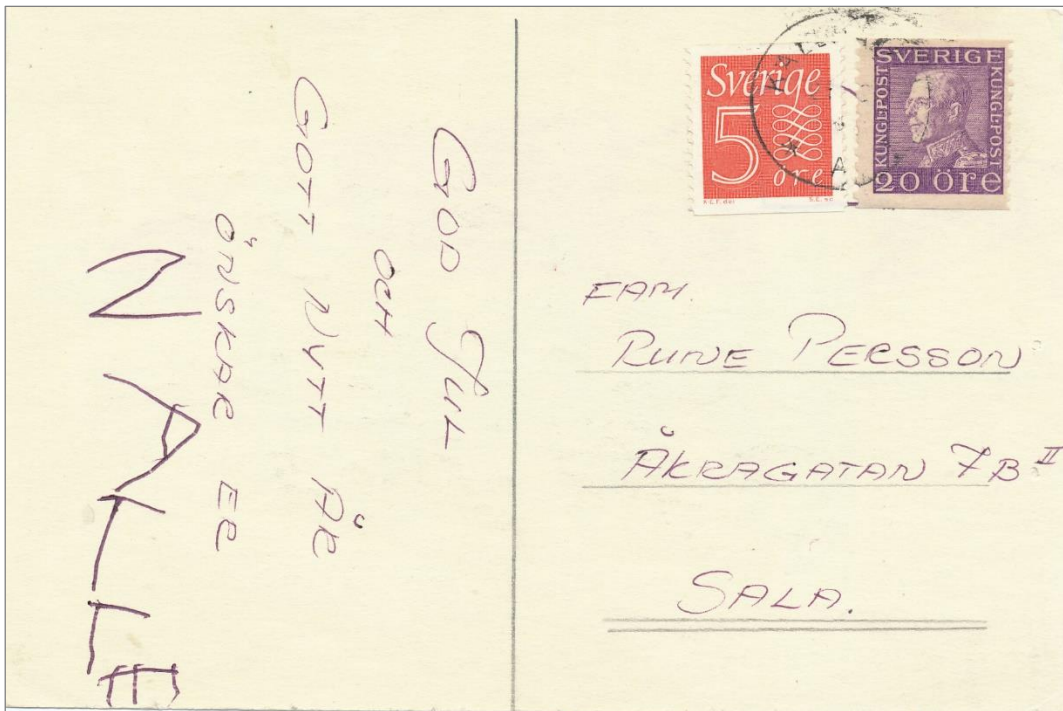 GOD JUL
OCH
GOTT NYTT ÅR
ÖNSKAR ER
NALLE
Sverige
5
öre
SVERIGE
KUNGL·POST
KUNGL·POST
20 öre
FAM.
RUNE PERSSON
ÅKRAGATAN 7B II
SALA.